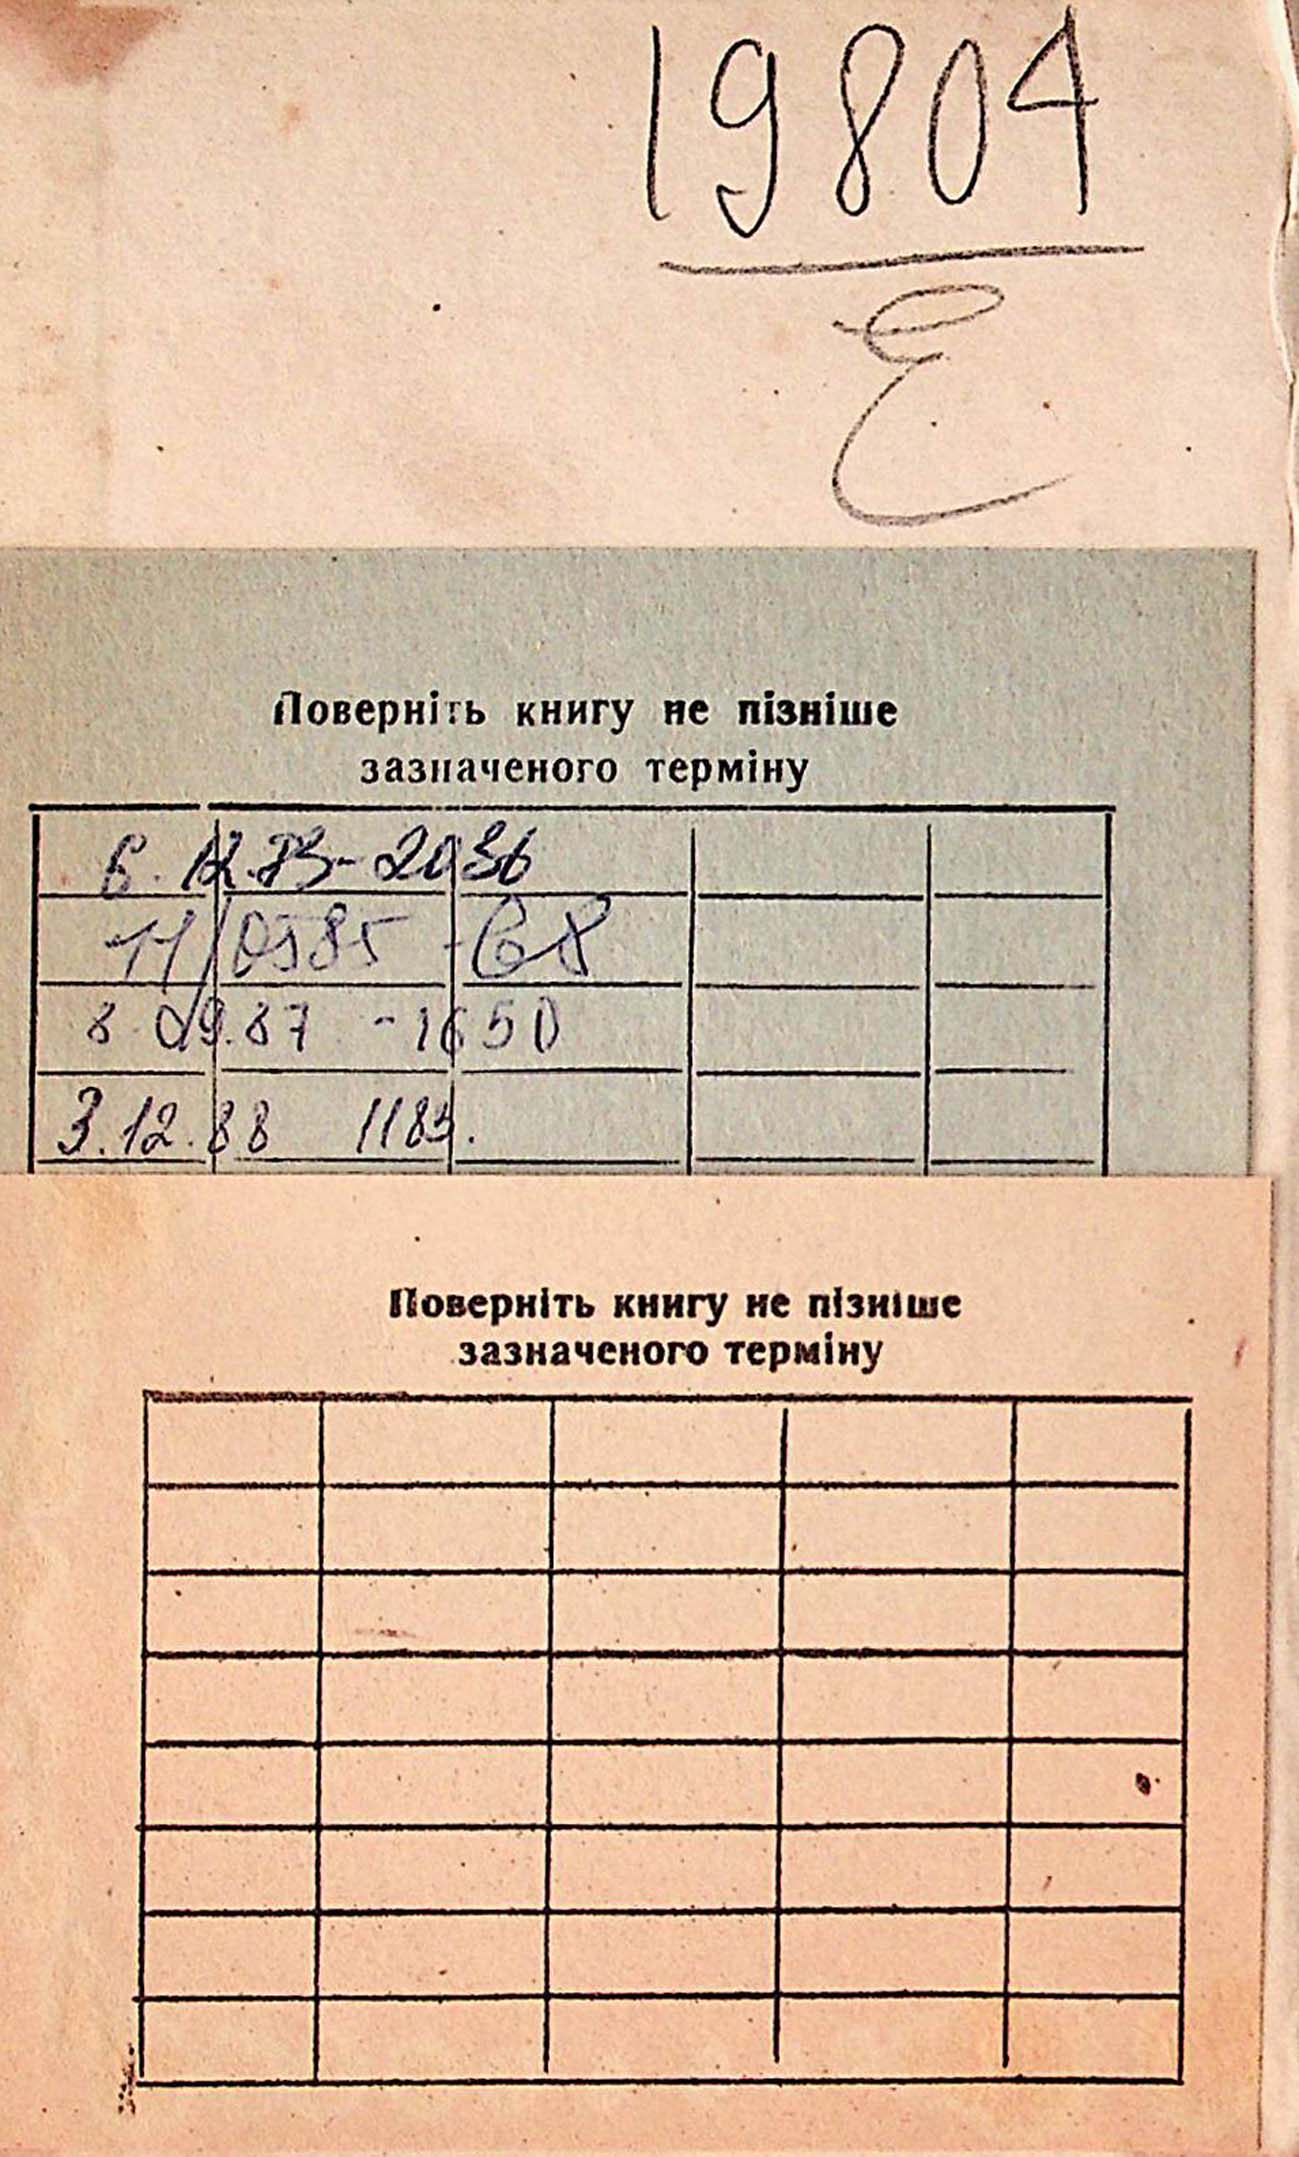 19804
Е
Поверніть книгу не пізніше
зазначеного терміну
6.12.83-2036
11/0585 -68
8 09.87 -1650
3.12.88 1183.
Поверніть книгу не пізніше
зазначеного терміну